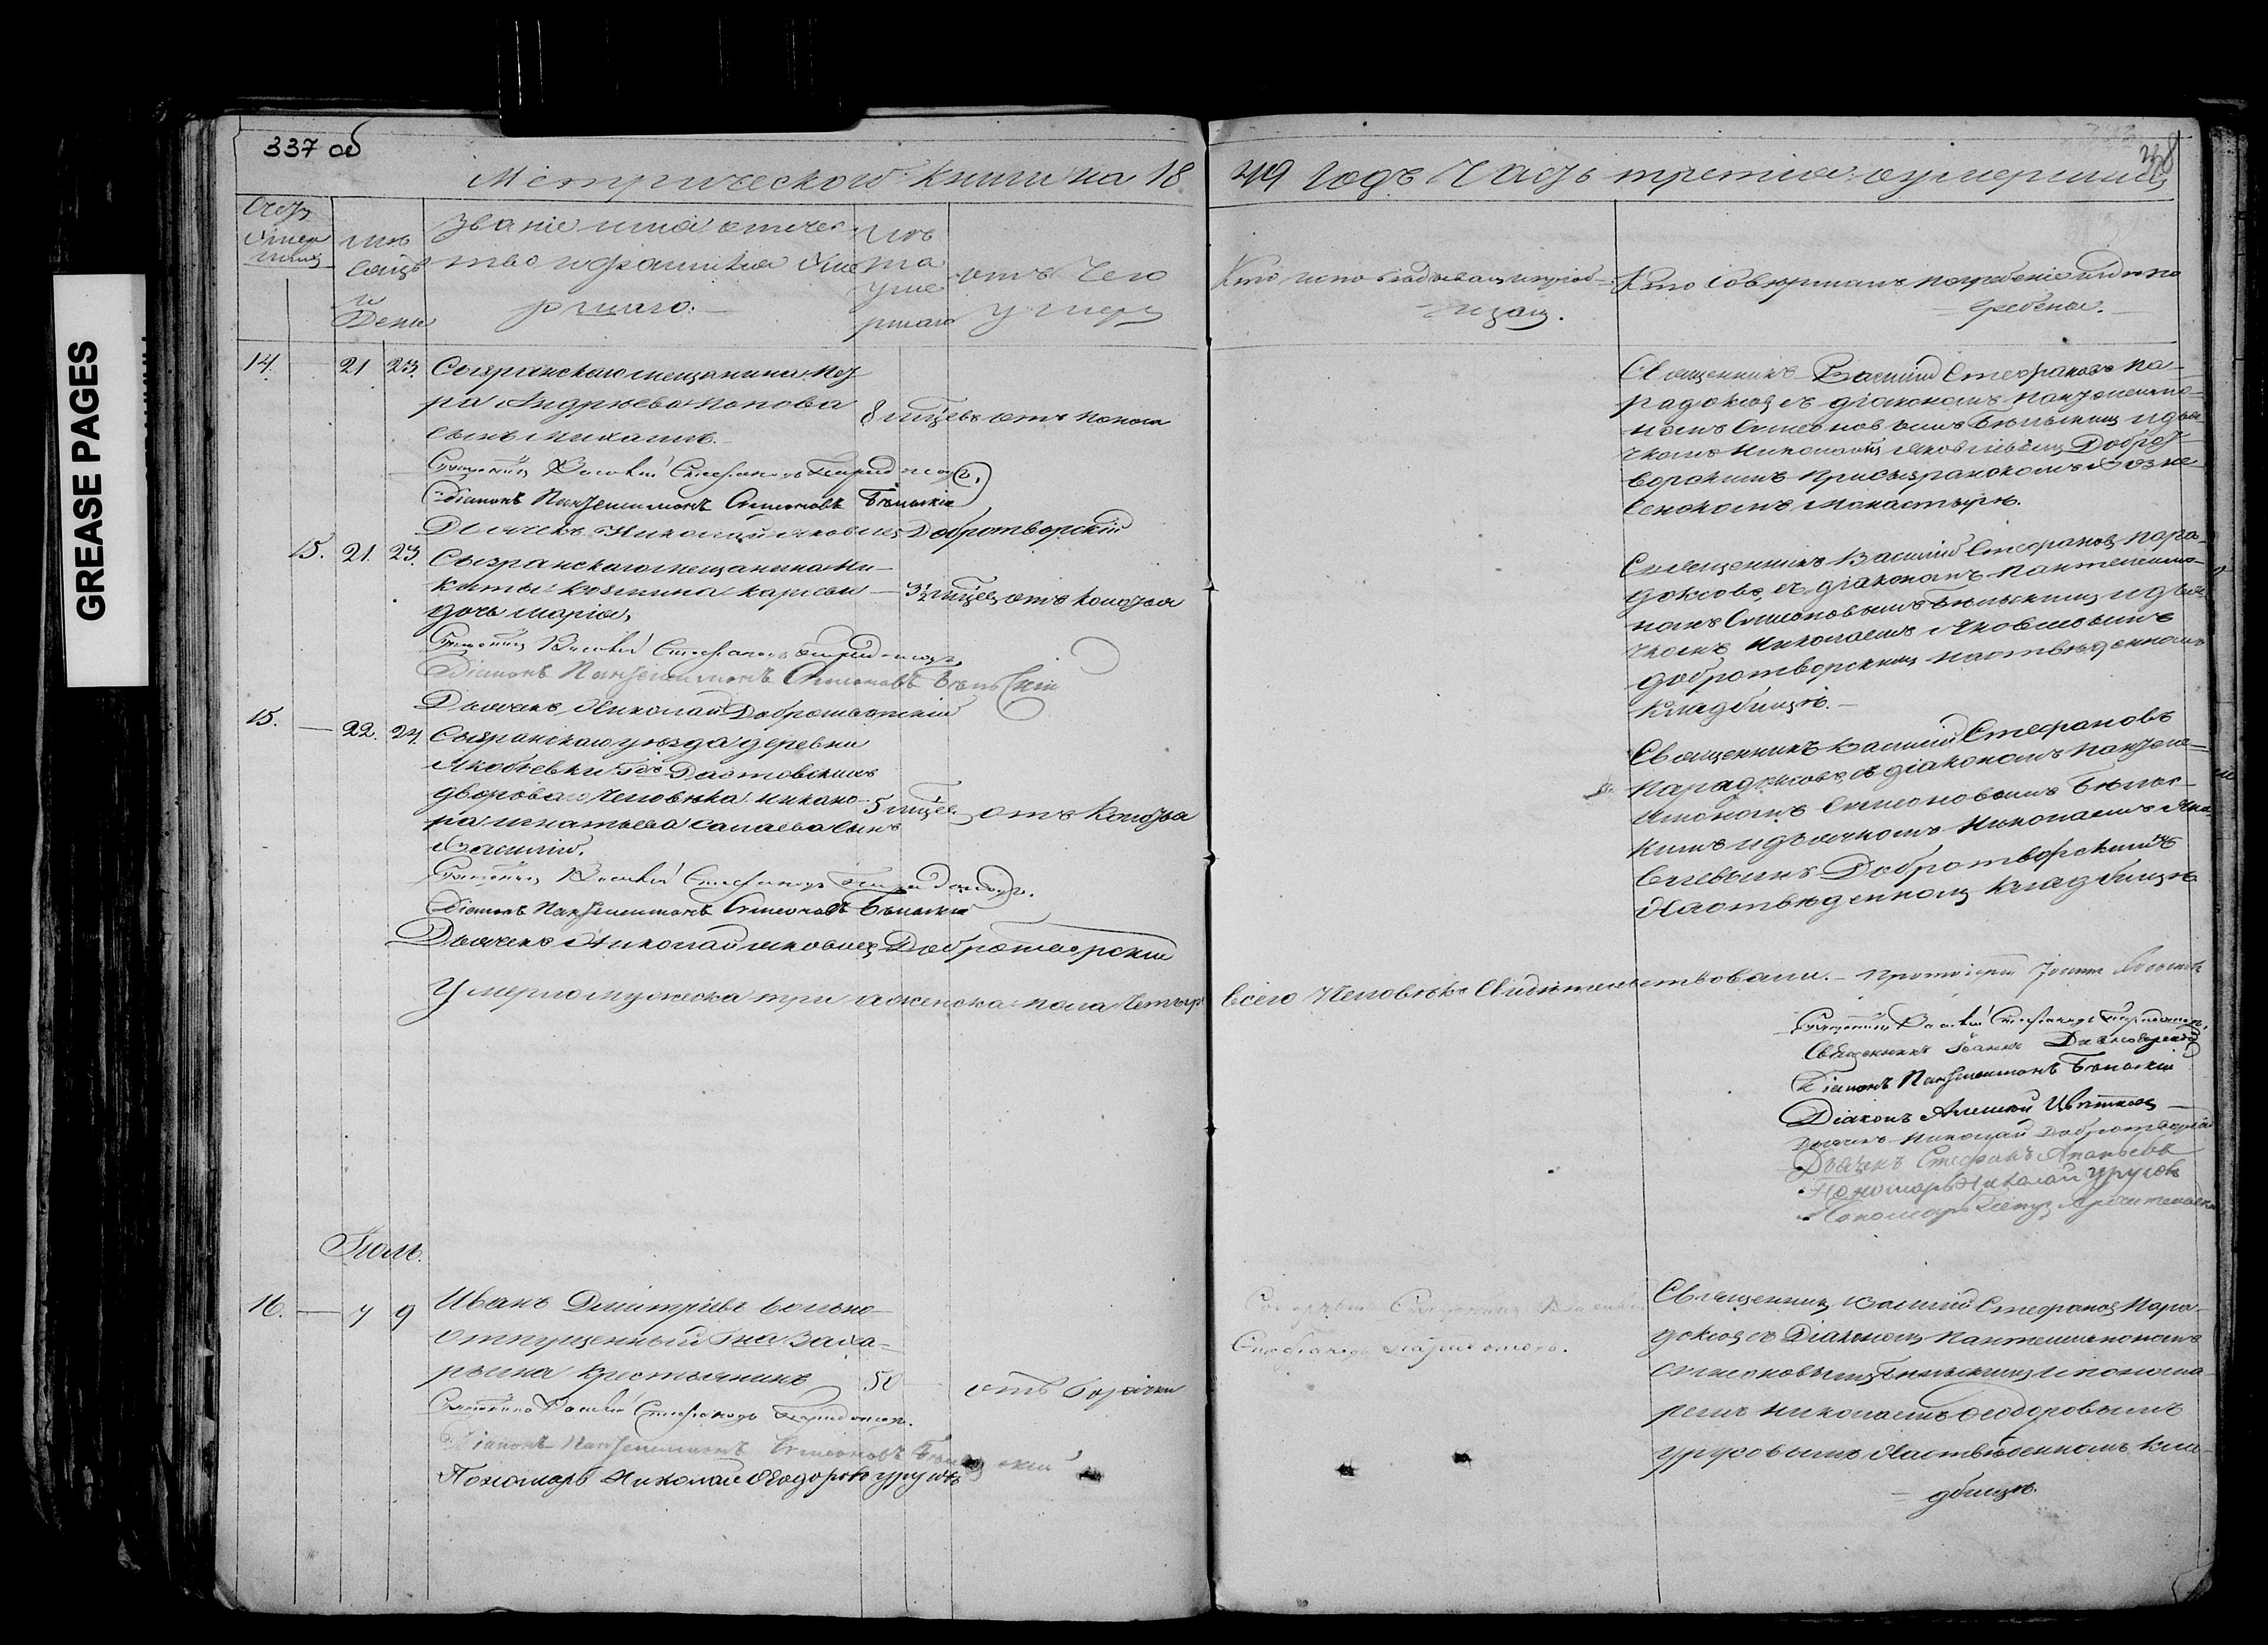 GREASE PAGES
337 об
338
Метрической книги на 1849 годъ Часть третія о умершихъ
Счетъ умершихъ
Мѣсяцъ и День
Званіе имя отчество и фамилія умершаго.
Лѣта умершаго
отъ чего умеръ
Кто исповѣдывалъ и пріобщалъ.
Кто совершалъ погребеніе и гдѣ погребены.
14. 21 23. Сызранскаго мещанина Пет
ра Андреева Попова
сынъ Михаилъ.
8 мѣцевъ отъ поноса
Священникъ Василій Стефановъ Парадоксовъ
Діаконъ Пантелеимонъ Симеоновъ Бѣльскій
Дьячекъ Николай Яковлевъ Добротворскій
Священникъ Василій Стефановъ Па-
радоксовъ съ діакономъ Пантелеимо-
номъ Симеоновымъ Бѣльскимъ и дья-
чкомъ Николаемъ Яковлевымъ Доброт-
ворскимъ при Сызранскомъ Возне-
сенскомъ монастырѣ.
15. 21. 23. Сызранскаго мещанина Ни-
киты Козмина
дочь Марія,
3½ мѣцевъ отъ колотья
Священникъ Василій Стефановъ Парадоксовъ
Діаконъ Пантелеимонъ Симеоновъ Бѣльскій
Дьячекъ Николай Добротворскій
Священникъ Василій Стефановъ Пара-
доксовъ съ діакономъ Пантелеимо-
номъ Симеоновымъ Бѣльскимъ и дья-
чкомъ Николаемъ Яковлевымъ
Добротворскимъ на отведенномъ
кладбищѣ.
15. 22. 24. Сызранскаго уѣзда деревни
Яковлевки
двороваго человѣка Никано-
ра Игнатьева сынъ
Василій.
5 мѣцев. отъ колотья
Священникъ Василій Стефановъ Парадоксовъ.
Діаконъ Пантелеимонъ Симеоновъ Бѣльскій
Дьячекъ Николай Яковлевъ Добротворскій
Священникъ Василій Стефановъ
Парадоксовъ съ діакономъ Пантеле-
имономъ Симеоновымъ Бѣльс-
кимъ и дьячкомъ Николаемъ Яко
влевымъ Добротворскимъ
На отведенномъ кладбищѣ
Умерло мужеска три а женска пола четыр всего человѣкъ Свидѣтельствовали. Протоіерей Іоаннъ
Священникъ Василій Стефановъ Парадоксовъ,
Священникъ Іоаннъ
Діаконъ Пантелеимонъ Бѣльскій
Діаконъ Алексѣй Цвѣтковъ
Дьячекъ Николай Добротворскій
Дьячекъ Стефанъ Ананьевъ
Пономарь Николай Урусовъ
Пономарь Петръ
Іюль.
16. 7 9 Иванъ Димитріевъ вольно-
отпущенный Гна Заха-
рьина крестьянинъ
50 отъ горячки
Священникъ Василій Стефановъ Парадоксовъ.
Діаконъ Пантелеимонъ Симеоновъ Бѣльскій
Пономарь Николай Ѳеодоровъ Урусовъ
Священникъ Василій
Стефановъ Парадоксовъ.
Священникъ Василій Стефановъ Пара-
доксовъ съ Діакономъ Пантелеимономъ
Симеоновымъ Бѣльскимъ и понома-
ремъ Николаемъ Ѳеодоровымъ
Урусовымъ На отведенномъ кла-
дбищѣ.